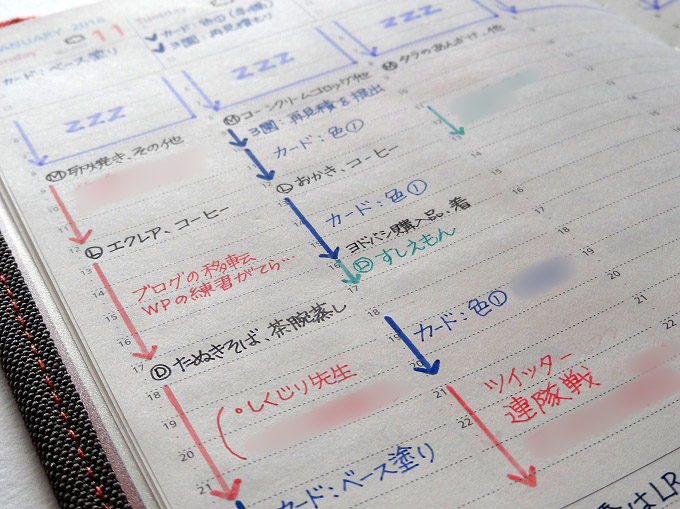 JANUARY 2016
11
カード:ベース塗り
zzz
Ⓜお好み焼き、その他
Ⓛエクレア、コーヒー
ブログの移転
WPの練習がてら…
Ⓓたぬきそば、茶腕蒸し
しくじり先生
カード:ベース塗り
カード:色①
3園:再見積もり
zzz
Ⓜコーンクリームコロッケ他
3園:再見積&提出
カード:色①
Ⓛおかき、コーヒー
カード:色①
ヨドバシ購入品、着
Ⓓすしえもん
カード:色①
ツイッター
連隊戦
zzz
Ⓜタラのあんかけ、他
はLR